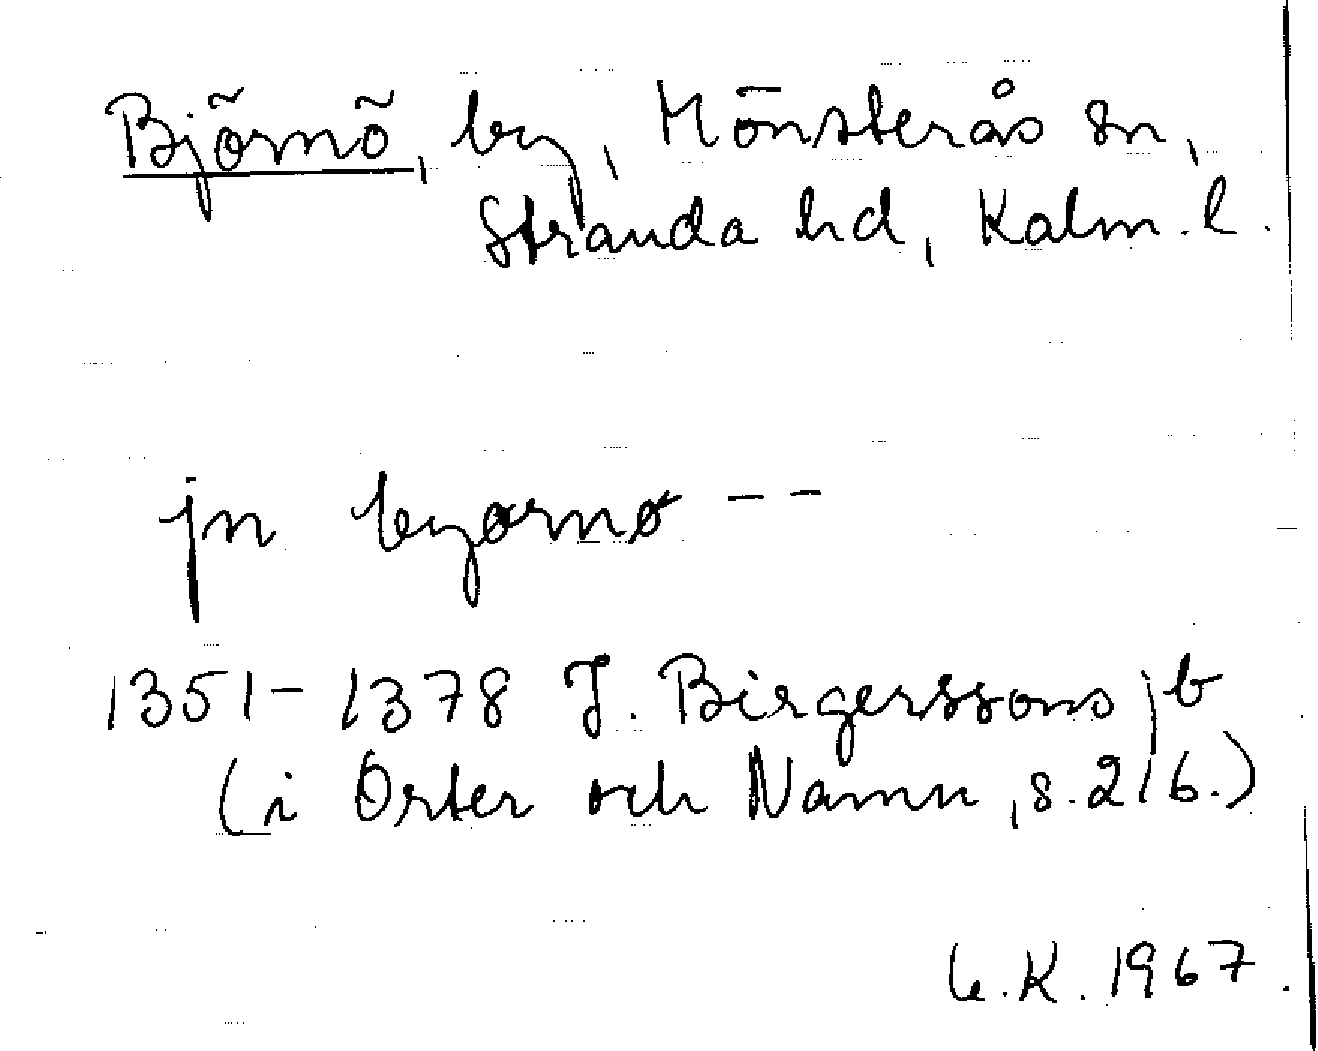 Björnö, by, Mönsterås sn,
Stranda hd, Kalm. l.
jn byørnø --
1351-1378 J. Birgerssons jb
(i Orter och Namn, s. 216.)
K. 1967.